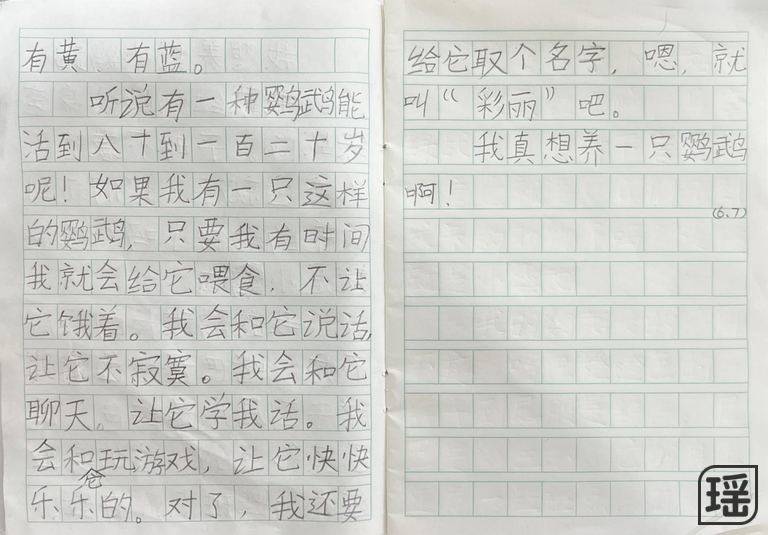 有黄、有蓝。
听说有一种鹦鹉能
活到八十到一百二十岁
呢！如果我有一只这样
的鹦鹉，只要我有时间
我就会给它喂食，不让
它饿着。我会和它说话，
让它不寂寞。我会和它
聊天，让它学我话。我
会和它玩游戏，让它快快
乐乐的。对了，我还要
给它取个名字，嗯，就
叫“彩丽”吧。
我真想养一只鹦鹉
啊！
(6.7)
瑶